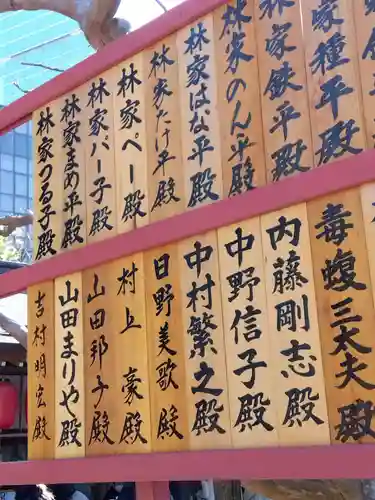 林家種平殿
林家鉄平殿
林家のん平殿
林家はな平殿
林家たけ平殿
林家ペー殿
林家パー子殿
林家まめ平殿
林家つる子殿
毒蝮三太夫殿
内藤剛志殿
中野信子殿
中村繁之殿
日野美歌殿
村上豪殿
山田邦子殿
山田まりや殿
吉村明宏殿